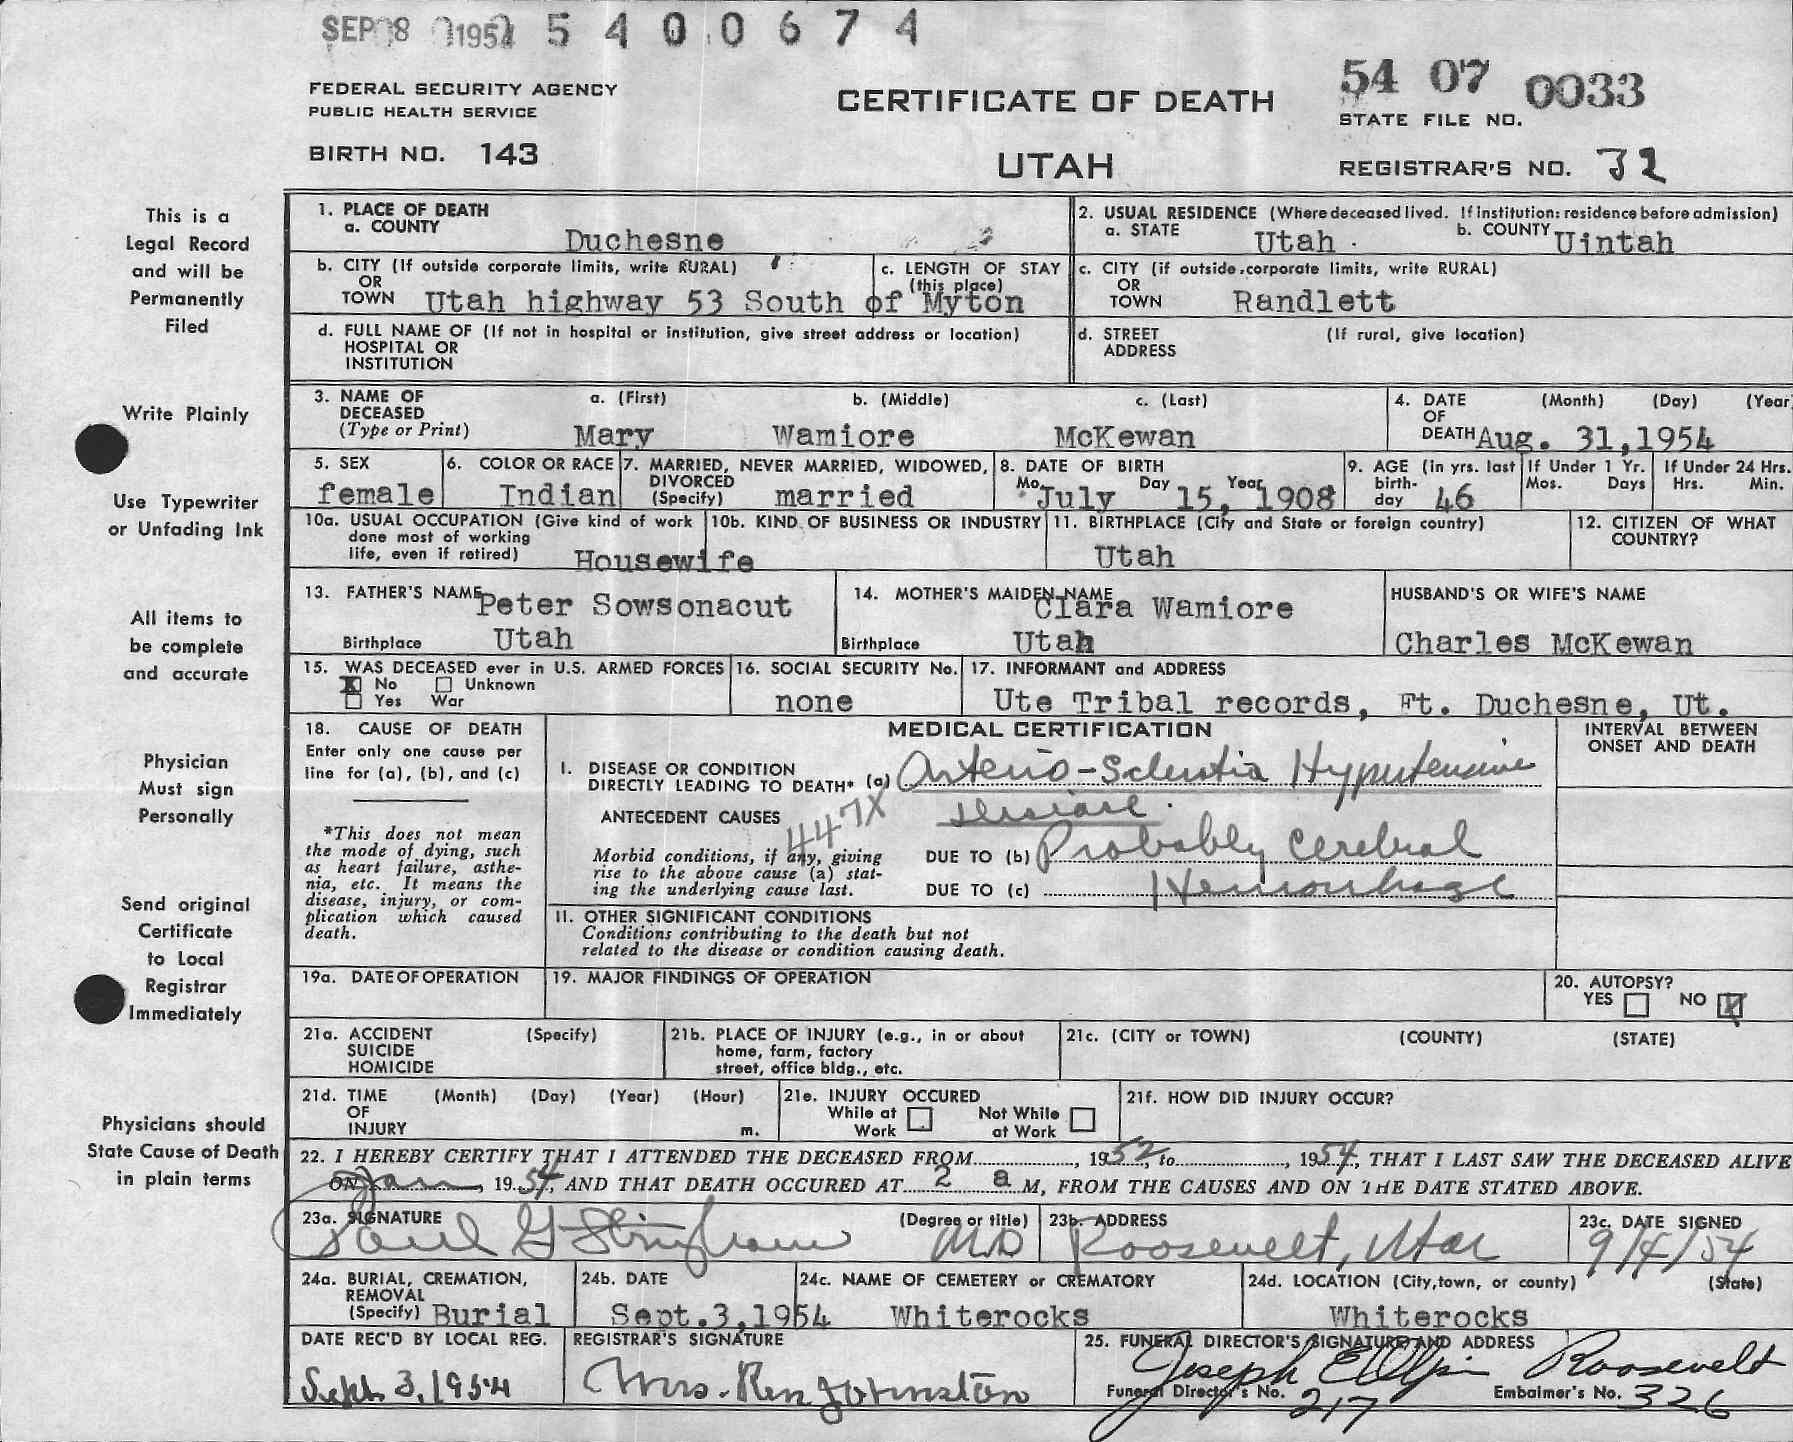 SEP 8 1954 5 4 0 0 6 7 4
54 07 0033
FEDERAL SECURITY AGENCY
PUBLIC HEALTH SERVICE
CERTIFICATE OF DEATH
STATE FILE NO.
BIRTH NO. 143
UTAH
REGISTRAR'S NO. 32
This is a
Legal Record
and will be
Permanently
Filed
Write Plainly
Use Typewriter
or Unfading Ink
All items to
be complete
and accurate
Physician
Must sign
Personally
Send original
Certificate
to Local
Registrar
Immediately
Physicians should
State Cause of Death
in plain terms
1. PLACE OF DEATH
a. COUNTY Duchesne
2. USUAL RESIDENCE (Where deceased lived. If institution: residence before admission)
a. STATE Utah b. COUNTY Uintah
b. CITY (If outside corporate limits, write RURAL)
OR
TOWN Utah highway 53 South of Myton
c. LENGTH OF STAY
(this place)
c. CITY (if outside corporate limits, write RURAL)
OR
TOWN Randlett
d. FULL NAME OF (If not in hospital or institution, give street address or location)
HOSPITAL OR
INSTITUTION
d. STREET (If rural, give location)
ADDRESS
3. NAME OF DECEASED (Type or Print)
a. (First) b. (Middle) c. (Last)
Mary Wamiore McKewan
4. DATE OF DEATH (Month) (Day) (Year)
Aug. 31,1954
5. SEX
female
6. COLOR OR RACE
Indian
7. MARRIED, NEVER MARRIED, WIDOWED,
DIVORCED
(Specify) married
8. DATE OF BIRTH
Mo. July Day 15, Year 1908
9. AGE (in yrs. last
birth-
day 46
If Under 1 Yr.
Mos. Days
If Under 24 Hrs.
Hrs. Min.
10a. USUAL OCCUPATION (Give kind of work
done most of working
life, even if retired) Housewife
10b. KIND OF BUSINESS OR INDUSTRY
11. BIRTHPLACE (City and State or foreign country)
Utah
12. CITIZEN OF WHAT
COUNTRY?
13. FATHER'S NAME Peter Sowsonacut
Birthplace Utah
14. MOTHER'S MAIDEN NAME
Clara Wamiore
Birthplace Utah
HUSBAND'S OR WIFE'S NAME
Charles McKewan
15. WAS DECEASED ever in U.S. ARMED FORCES
No Unknown
Yes War
16. SOCIAL SECURITY No.
none
17. INFORMANT and ADDRESS
Ute Tribal records, Ft. Duchesne, Ut.
18. CAUSE OF DEATH
Enter only one cause per
line for (a), (b), and (c)
*This does not mean
the mode of dying, such
as heart failure, asthe-
nia, etc. It means the
disease, injury, or com-
plication which caused
death.
MEDICAL CERTIFICATION
INTERVAL BETWEEN
ONSET AND DEATH
I. DISEASE OR CONDITION
DIRECTLY LEADING TO DEATH* (a) Arterio-Sclerotic Hypertensive
disease.
ANTECEDENT CAUSES
447X
Morbid conditions, if any, giving
rise to the above cause (a) stat-
ing the underlying cause last.
DUE TO (b) Probably Cerebral
DUE TO (c) Hemorrhage
II. OTHER SIGNIFICANT CONDITIONS
Conditions contributing to the death but not
related to the disease or condition causing death.
19a. DATE OF OPERATION
19. MAJOR FINDINGS OF OPERATION
20. AUTOPSY?
YES NO
21a. ACCIDENT (Specify)
SUICIDE
HOMICIDE
21b. PLACE OF INJURY (e.g., in or about
home, farm, factory
street, office bldg., etc.
21c. (CITY or TOWN) (COUNTY) (STATE)
21d. TIME (Month) (Day) (Year) (Hour)
OF
INJURY m.
21e. INJURY OCCURED
While at Work
Not While at Work
21f. HOW DID INJURY OCCUR?
22. I HEREBY CERTIFY THAT I ATTENDED THE DECEASED FROM , 1952, to , 1954, THAT I LAST SAW THE DECEASED ALIVE
ON Jan , 1954, AND THAT DEATH OCCURED AT 2 a M, FROM THE CAUSES AND ON THE DATE STATED ABOVE.
23a. SIGNATURE (Degree or title)
Paul G Stringham MD
23b. ADDRESS
Roosevelt, Utah
23c. DATE SIGNED
9/4/54
24a. BURIAL, CREMATION,
REMOVAL
(Specify) Burial
24b. DATE
Sept.3,1954
24c. NAME OF CEMETERY or CREMATORY
Whiterocks
24d. LOCATION (City,town, or county) (State)
Whiterocks
DATE REC'D BY LOCAL REG.
Sept. 3, 1954
REGISTRAR'S SIGNATURE
Mrs. Ken Johnston
25. FUNERAL DIRECTOR'S SIGNATURE AND ADDRESS
Joseph E Olpin Roosevelt
Funeral Director's No. 217
Embalmer's No. 326